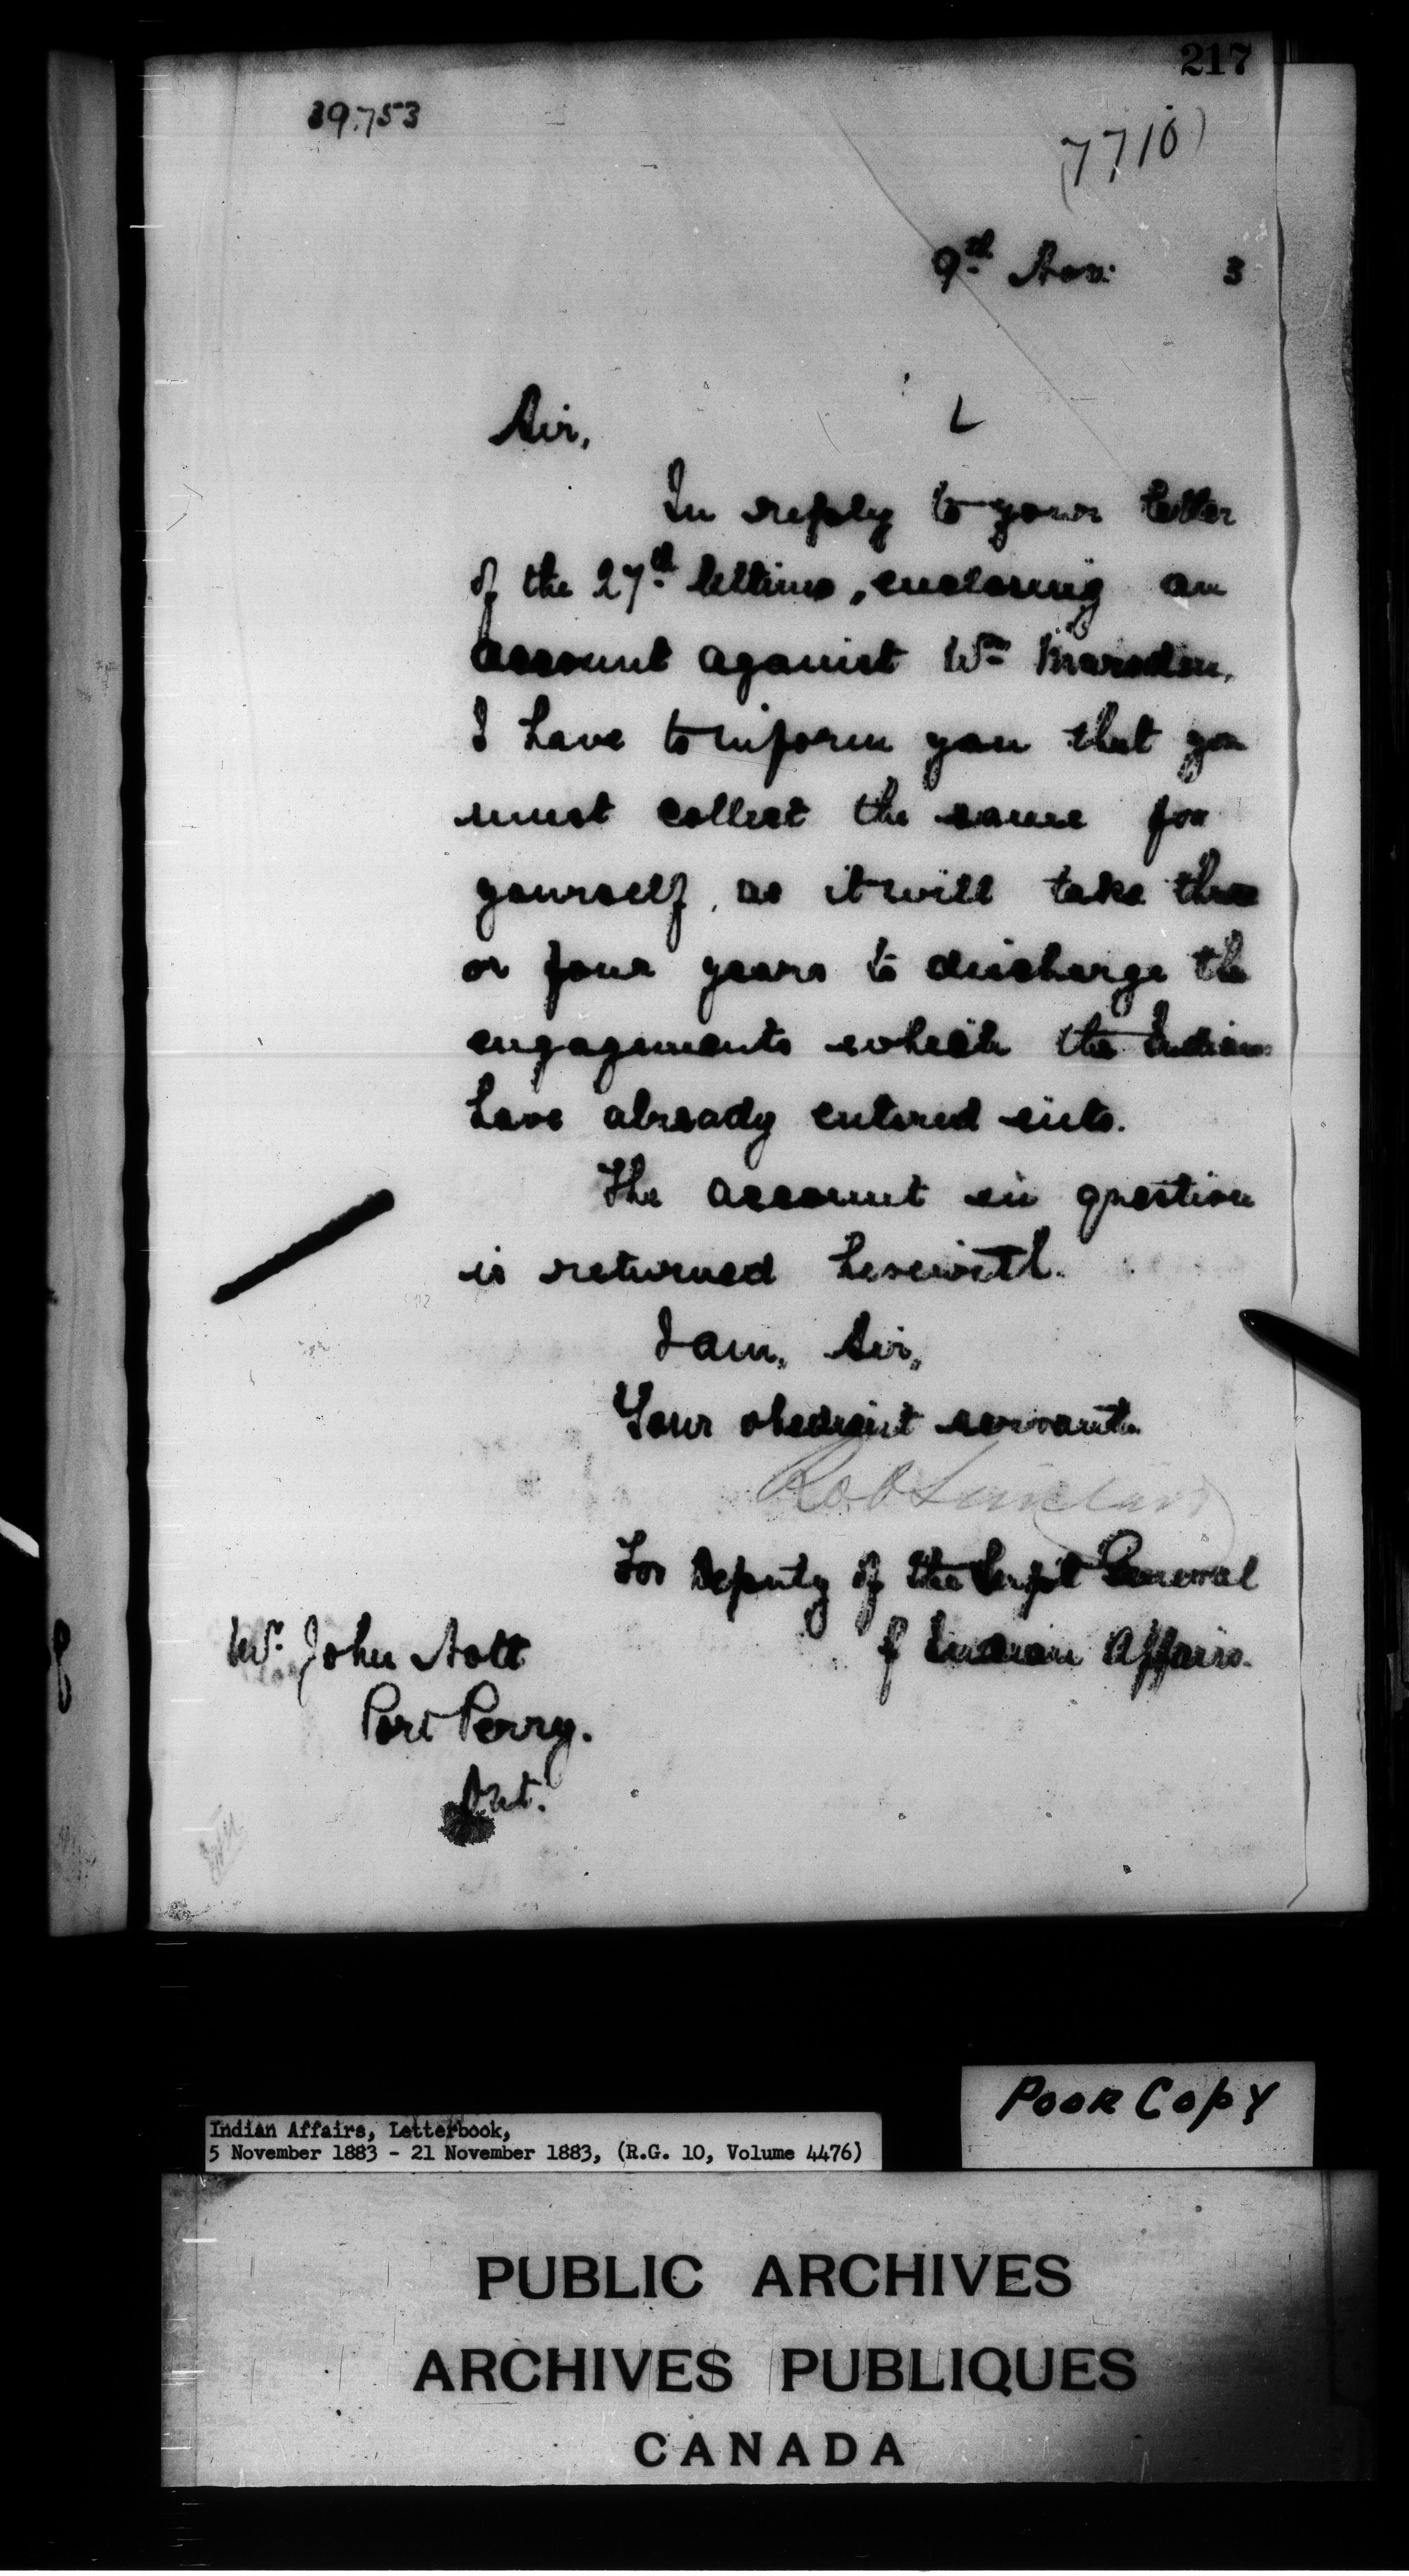 217
39.753
7710
9th Nov: 3
Sir,
L
In reply to your letter
of the 27th Ultimo, enclosing an
account against Wm Marsden,
I have to inform you that you
must collect the same for
yourself, as it will take three
or four years to discharge the
engagements which the Indians
have already entered into.
The account in question
is returned herewith.
I am, Sir,
Your obedient servant
Rob Sinclair
For Deputy of the Supt General
of Indian Affairs.
Mr. John Nott
Port Perry.
Ont.
Poor Copy
Indian Affairs, Letterbook,
5 November 1883 - 21 November 1883, (R.G. 10, Volume 4476)
PUBLIC ARCHIVES
ARCHIVES PUBLIQUES
CANADA